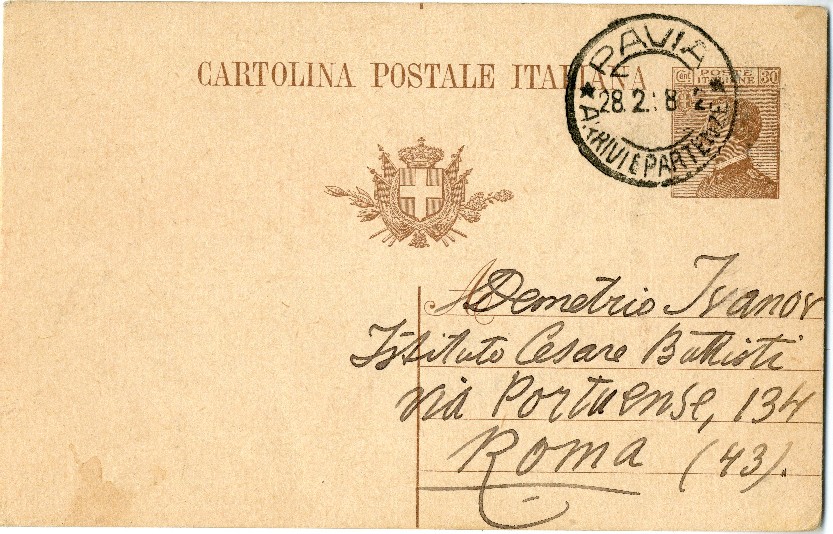 CARTOLINA POSTALE ITALIANA
PAVIA
28.2. 8 2
ARRIVI E PARTENZE
Cent POSTE ITALIANE 30
A Demetrio Ivanov
Istituto Cesare Battisti
via Portuense, 134
Roma (43).